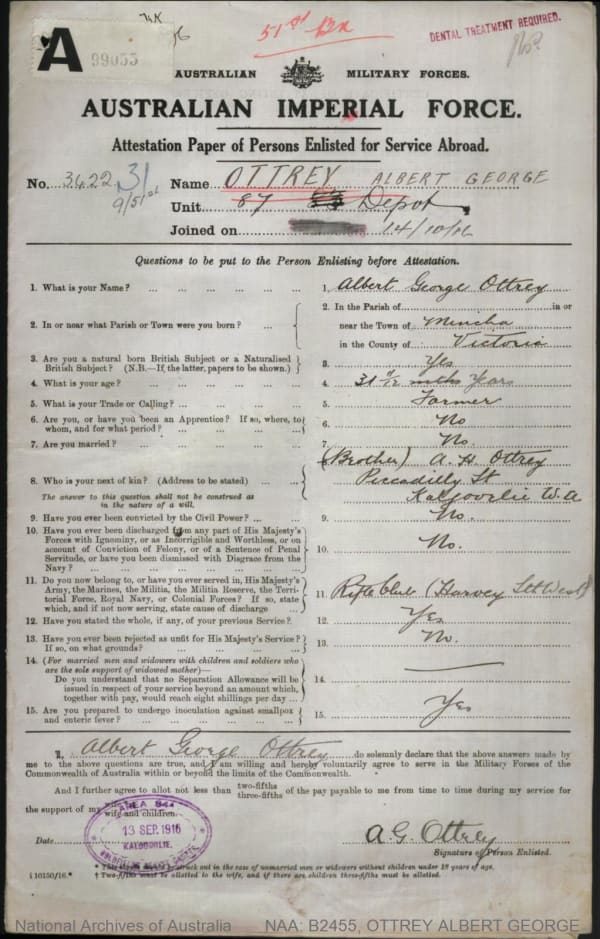 51st Bn
DENTAL TREATMENT REQUIRED.
A
99055
AUSTRALIAN MILITARY FORCES.
AUSTRALIAN IMPERIAL FORCE.
Attestation Paper of Persons Enlisted for Service Abroad.
No. 3422 31 Name OTTREY ALBERT GEORGE
9/51st Unit 87 Depot
Joined on 14/10/16
Questions to be put to the Person Enlisting before Attestation.
1. What is your Name? ... 1. Albert George Ottrey
2. In or near what Parish or Town were you born? ... 2. In the Parish of ... in or
near the Town of Mincha
in the County of Victoria
3. Are you a natural born British Subject or a Naturalised
British Subject? (N.B.—If the latter, papers to be shown.) 3. Yes
4. What is your age? ... 4. 31 mths Years
5. What is your Trade or Calling? ... 5. Farmer
6. Are you, or have you been an Apprentice? If so, where, to
whom, and for what period? ... 6. No
7. Are you married? ... 7. No.
8. Who is your next of kin? (Address to be stated) ... (Brother) A. H. Ottrey
Piccadilly St
Kalgoorlie W.A
The answer to this question shall not be construed as
in the nature of a will.
9. Have you ever been convicted by the Civil Power? ... 9. No.
10. Have you ever been discharged from any part of His Majesty's
Forces with Ignominy, or as Incorrigible and Worthless, or on
account of Conviction of Felony, or of a Sentence of Penal
Servitude, or have you been dismissed with Disgrace from the
Navy? ... 10. No.
11. Do you now belong to, or have you ever served in, His Majesty's
Army, the Marines, the Militia, the Militia Reserve, the Terri-
torial Force, Royal Navy, or Colonial Forces? If so, state
which, and if not now serving, state cause of discharge ... 11. Rifle Club (Harvey Sth West)
12. Have you stated the whole, if any, of your previous Service? 12. Yes
13. Have you ever been rejected as unfit for His Majesty's Service?
If so, on what grounds? ... 13. No.
14. (For married men and widowers with children and soldiers who
are the sole support of widowed mother)—
Do you understand that no Separation Allowance will be
issued in respect of your service beyond an amount which,
together with pay, would reach eight shillings per day ... 14.
15. Are you prepared to undergo inoculation against smallpox
and enteric fever? ... 15. Yes
I, Albert George Ottrey do solemnly declare that the above answers made by
me to the above questions are true, and I am willing and hereby voluntarily agree to serve in the Military Forces of the
Commonwealth of Australia within or beyond the limits of the Commonwealth.
And I further agree to allot not less than two-fifths three-fifths of the pay payable to me from time to time during my service for
the support of my wife and children.
AREA
13 SEP. 1916
KALGOORLIE.
Date A G. Ottrey
Signature of Person Enlisted.
in the case of unmarried men or widowers without children under 18 years of age.
i 10150/16.* † Two-fifths must be allotted to the wife, and if there are children three-fifths must be allotted.
National Archives of Australia NAA: B2455, OTTREY ALBERT GEORGE